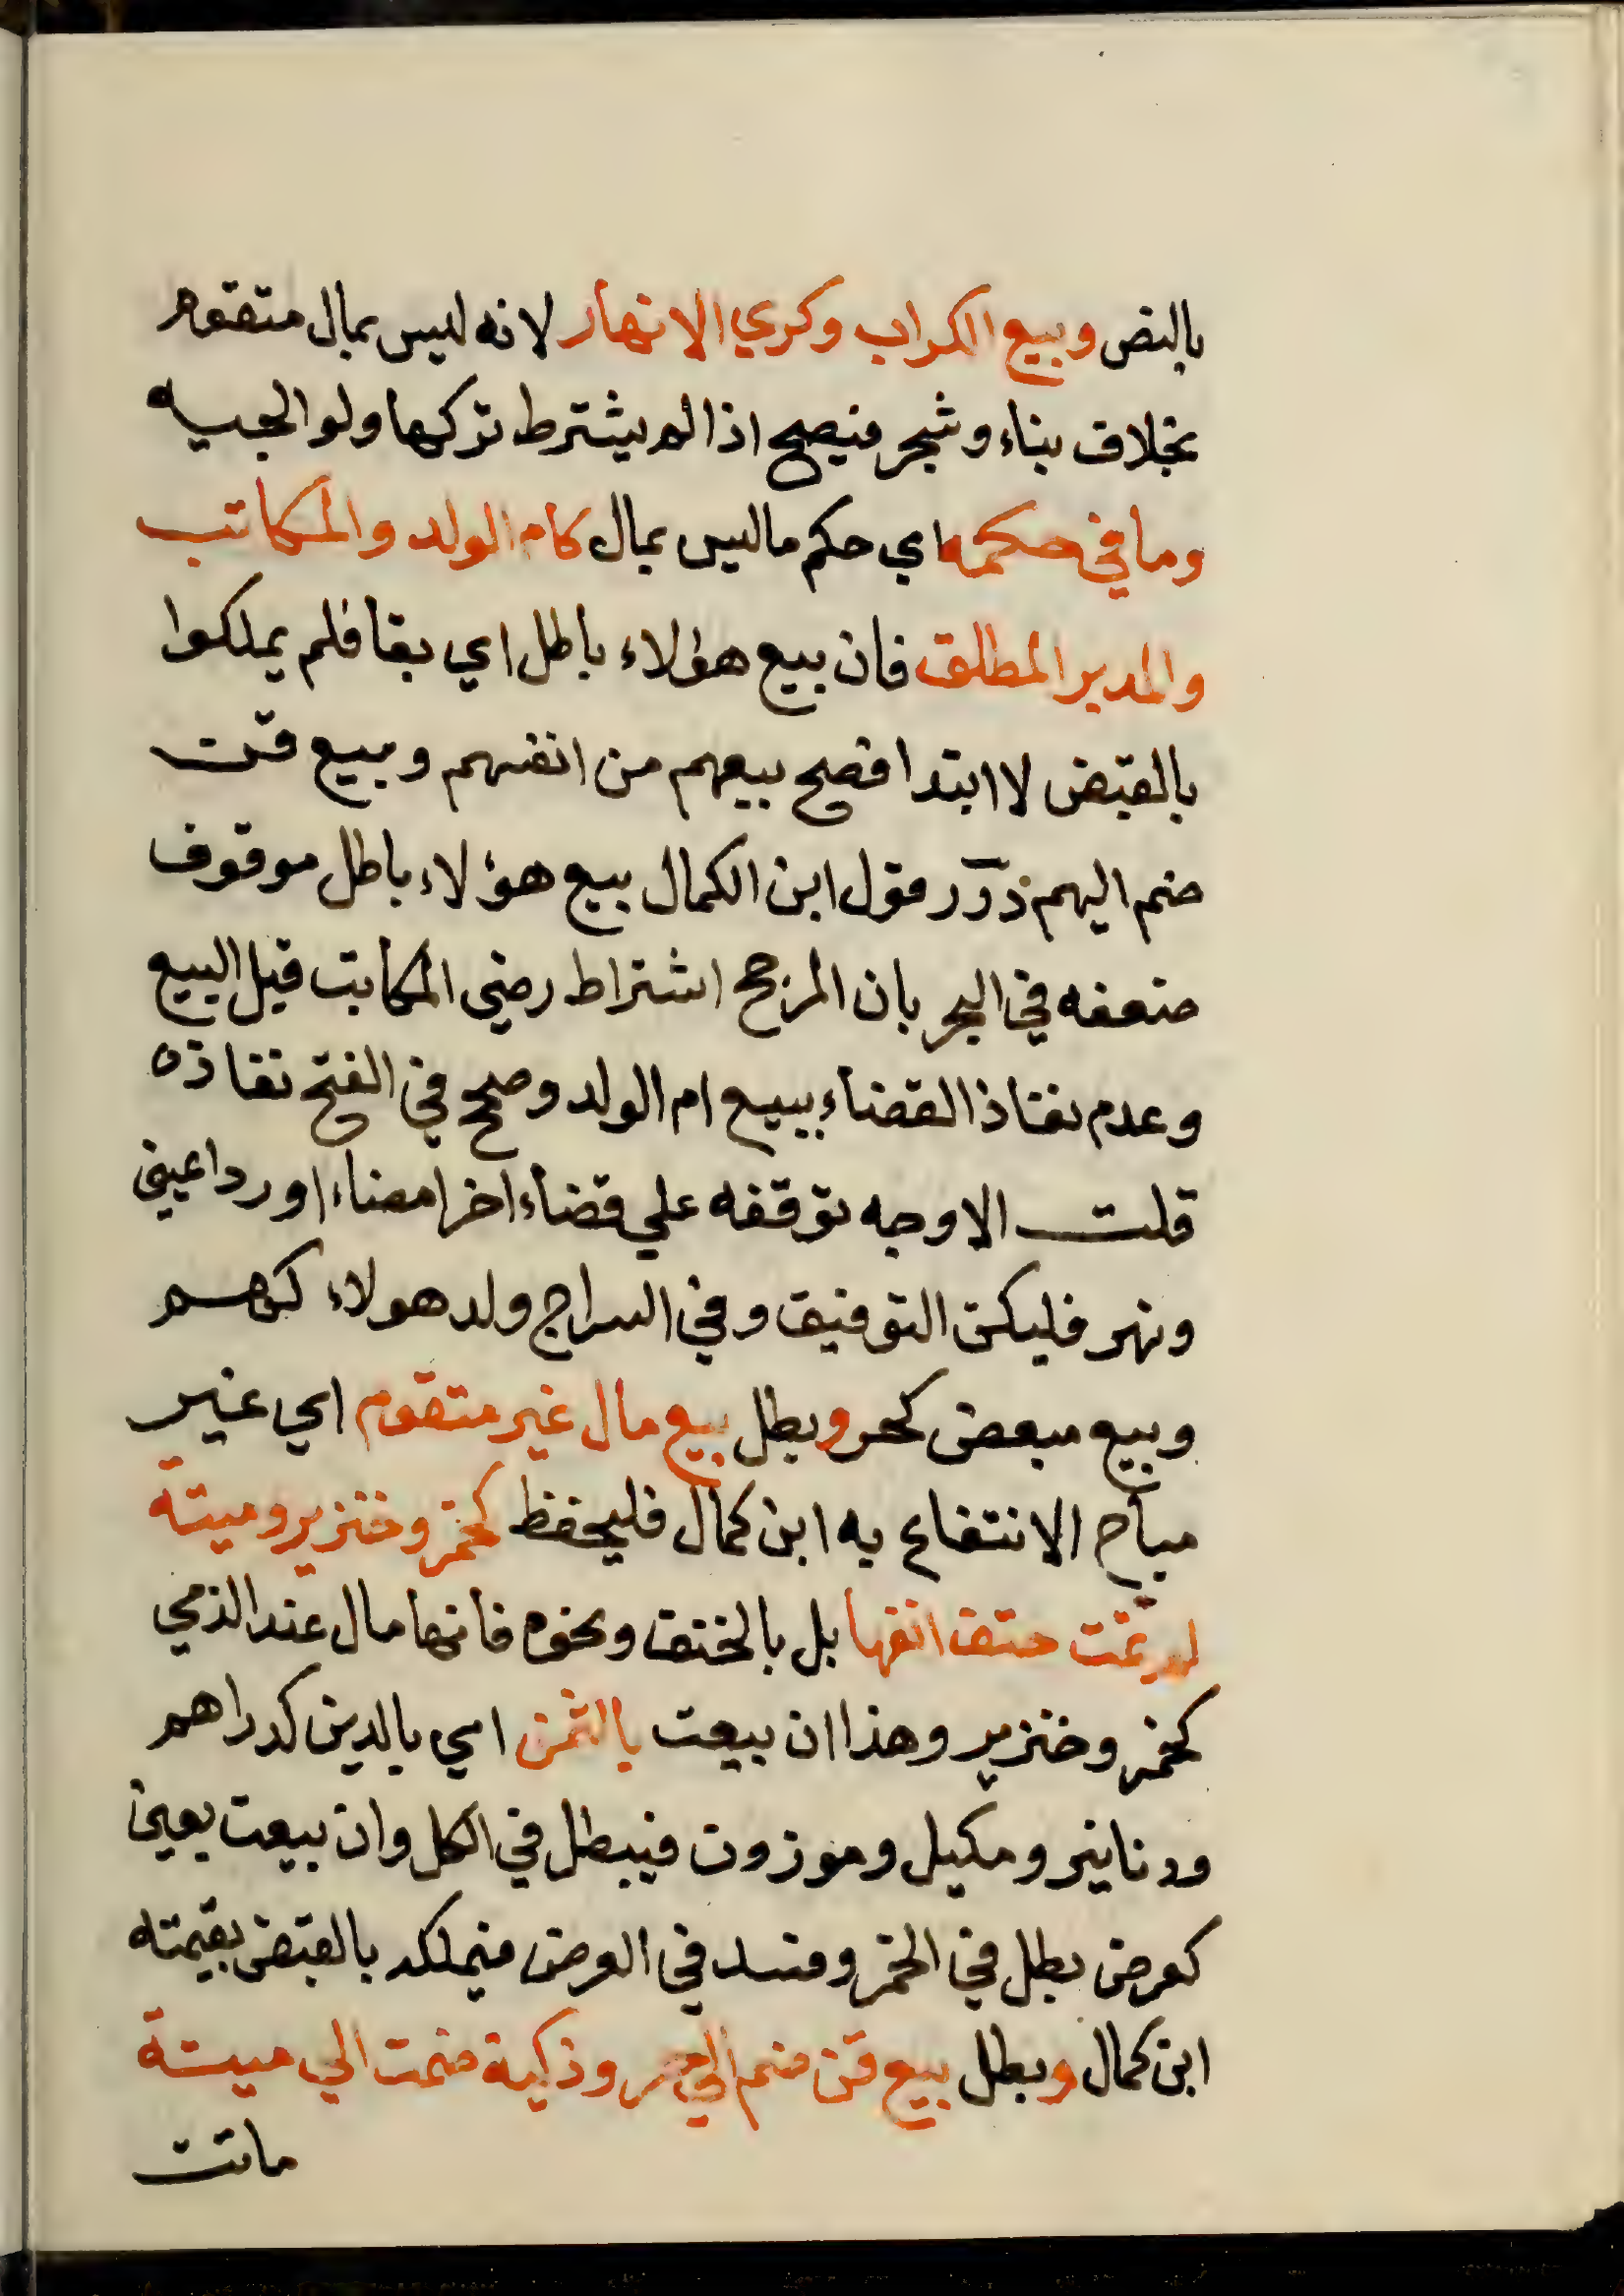 بالنص وبيع الكراب وكري الانهار لانه ليس بمال متقوم
بخلاف بناء وشجر فيصح اذا لم يشترط تركها ولوالجيه
وما في حكمه اي حكم ما ليس بمال كام الولد والمكاتب
والمدبر المطلق فان بيع هؤلاء باطل اي بقا فلم يملكوا
بالقبض لا ابتدا فصح بيعهم من انفسهم وبيع قن
ضم اليهم درر وقول ابن الكمال بيع هؤلاء باطل موقوف
ضعفه في البحر بان المرجح اشتراط رضي المكاتب قبل البيع
وعدم نفاذ القضاء ببيع ام الولد وصحح في الفتح نفاذه
قلت الاوجه توقفه علي قضاء اخر امضاء او ردا عيني
ونهر فليكن التوفيق وفي السراج ولد هولاء كهم
وبيع مبعض كحر وبطل بيع مال غير متقوم اي غير
مباح الانتفاع به ابن كمال فليحفظ كخمر وخنزير وميتة
لم تمت حتف انفها بل بالخنق ونحوه فانها مال عند الذمي
كخمر وخنزير وهذا ان بيعت بالثمن اي بالدين كدراهم
ودنانير ومكيل وموزون فيبطل في الكل وان بيعت بعين
كعرض بطل في الخمر وفسد في العرض فيملكه بالقبض بقيمته
ابن كمال وبطل بيع قن ضم الي حر وذكية ضمت الي ميتة
ماتت